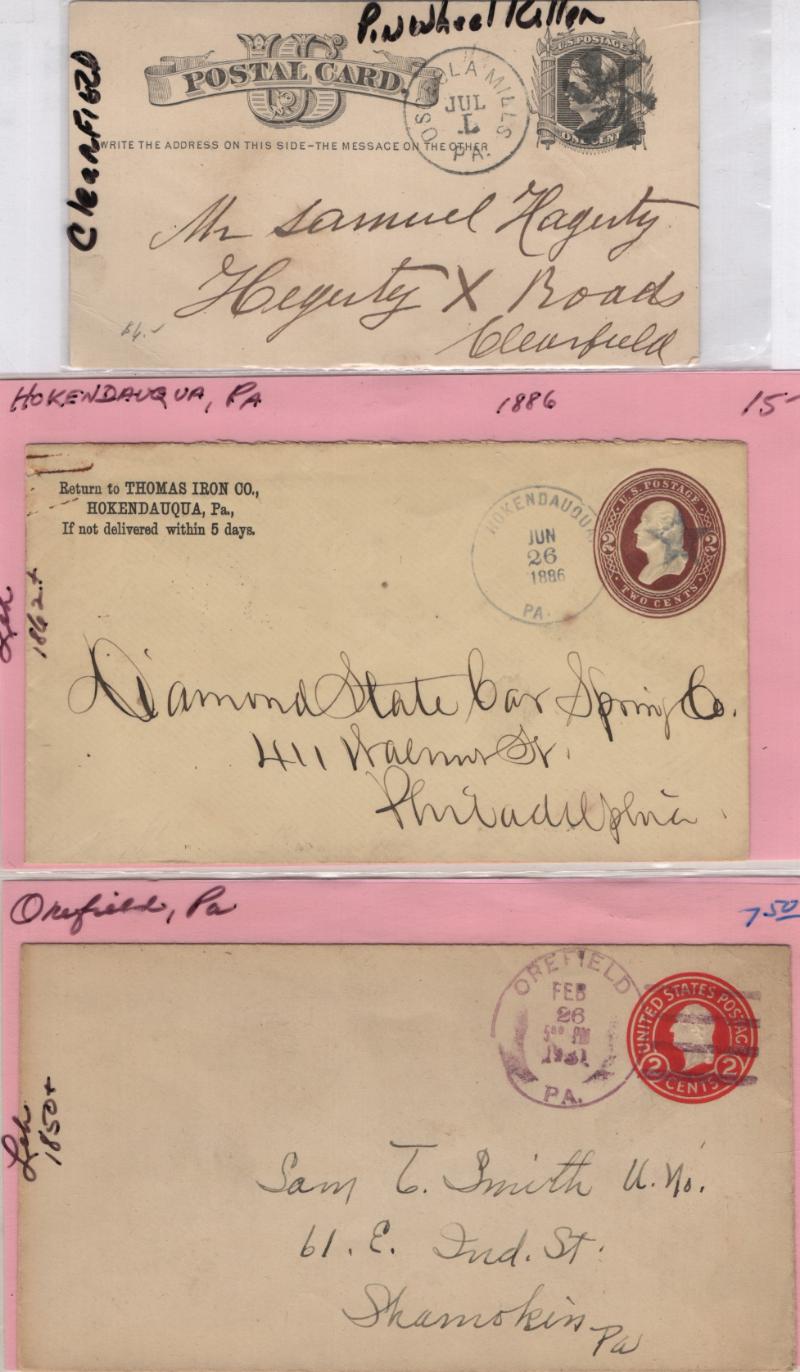 Pinwheel Killer
Clearfield
US
POSTAL CARD.
OSCEOLA MILLS
JUL
1
PA.
U.S. POSTAGE
ONE CENT
WRITE THE ADDRESS ON THIS SIDE–THE MESSAGE ON THE OTHER
Mr Samuel Hagerty
Hegerty X Roads
Clearfield
$6.-
HOKENDAUQUA, PA 1886 15-
Return to THOMAS IRON CO.,
HOKENDAUQUA, Pa.,
If not delivered within 5 days.
HOKENDAUQUA
JUN
26
1886
PA.
U.S. POSTAGE
2 2
TWO CENTS
Leh
1862+
Diamond State Car Spring Co.
411 Walnut St.
Philadelphia
Orefield, Pa 7 50
OREFIELD
FEB
26
5 00 PM
1931
PA.
UNITED STATES POSTAGE
2 CENTS 2
Leh
1850+
Sam T. Smith U. No.
61. E. Ind. St.
Shamokin
Pa